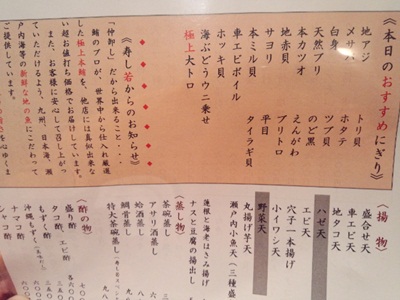 《本日のおすすめにぎり》
地アジ
メサバ
白身
天然ブリ
本カツオ
地赤貝
サヨリ
本ミル貝
車エビボイル
ホッキ貝
海ぶどうウニ乗せ
極上大トロ
トリ貝
ホタテ
ツブ貝
のど黒
えんがわ
ブリトロ
平目
タイラギ貝
《寿し若からのお知らせ》
「仲卸し」だから出来ること・・・
鮪のプロが、世界中から仕入れ厳選
した極上本鮪を、他店には真似出来な
い超お値打ち価格でお届けしています。
また、お客様に安心して召し上がっ
ていただけるよう、九州、日本海、瀬
戸内海等の新鮮な地の魚にこだわって
ご提供しています。
《揚物》
盛合せ天
車エビ天
地タコ天
ハゼ天
エビ天
穴子一本揚げ
小イワシ天
野菜天
丸揚げ芋天
瀬戸内小魚天（三種盛
蓮根と海老はさみ揚げ
ナスと豆腐の揚出し
《蒸し物》
茶碗蒸し
アサリ酒蒸し
蛤酒蒸し
鯛骨蒸し
特大茶碗蒸し
《酢の物》
盛り酢
タコ酢、エビ
もずく酢
沖縄もずく
ナマコ酢
シャコ酢